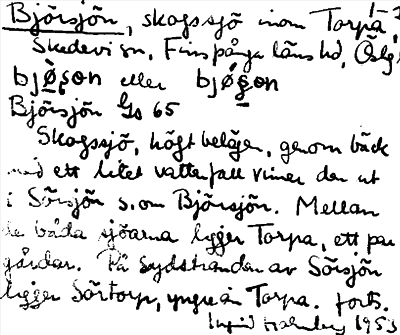 Björsjön, skogssjö inom Torpa, 1-1
Skedevi sn, Finspånga läns hd, Östg
bjø̀ṣɷn eller bjǿṣɷn
Björsjön Gs 65
Skogssjö, högt belägen, genom bäck
med ett litet vattenfall rinner den ut
i Sörsjön s.om Björsjön. Mellan
de båda sjöarna ligger Torpa, ett par
gårdar. På sydstranden av Sörsjön
ligger Sörtorp, yngre än Torpa. forts.
1953